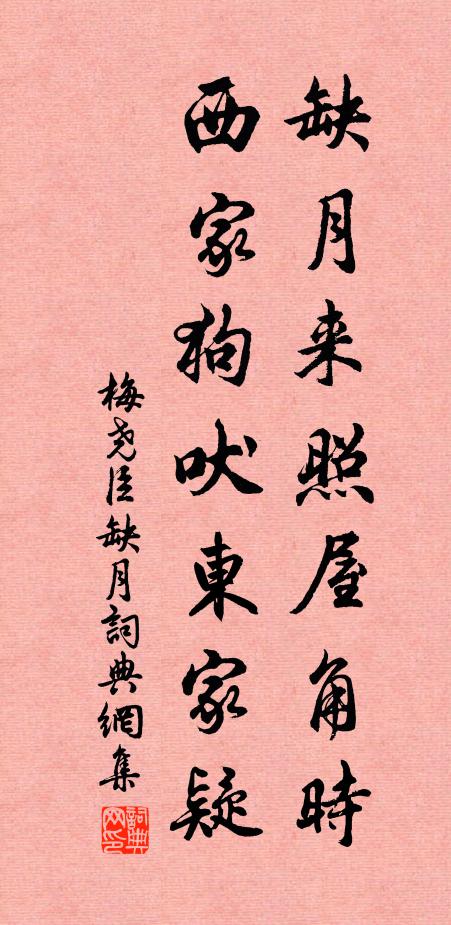 缺月来照屋角時
西家狗吠東家疑
梅尧臣缺月詞典網集
詞典
网印